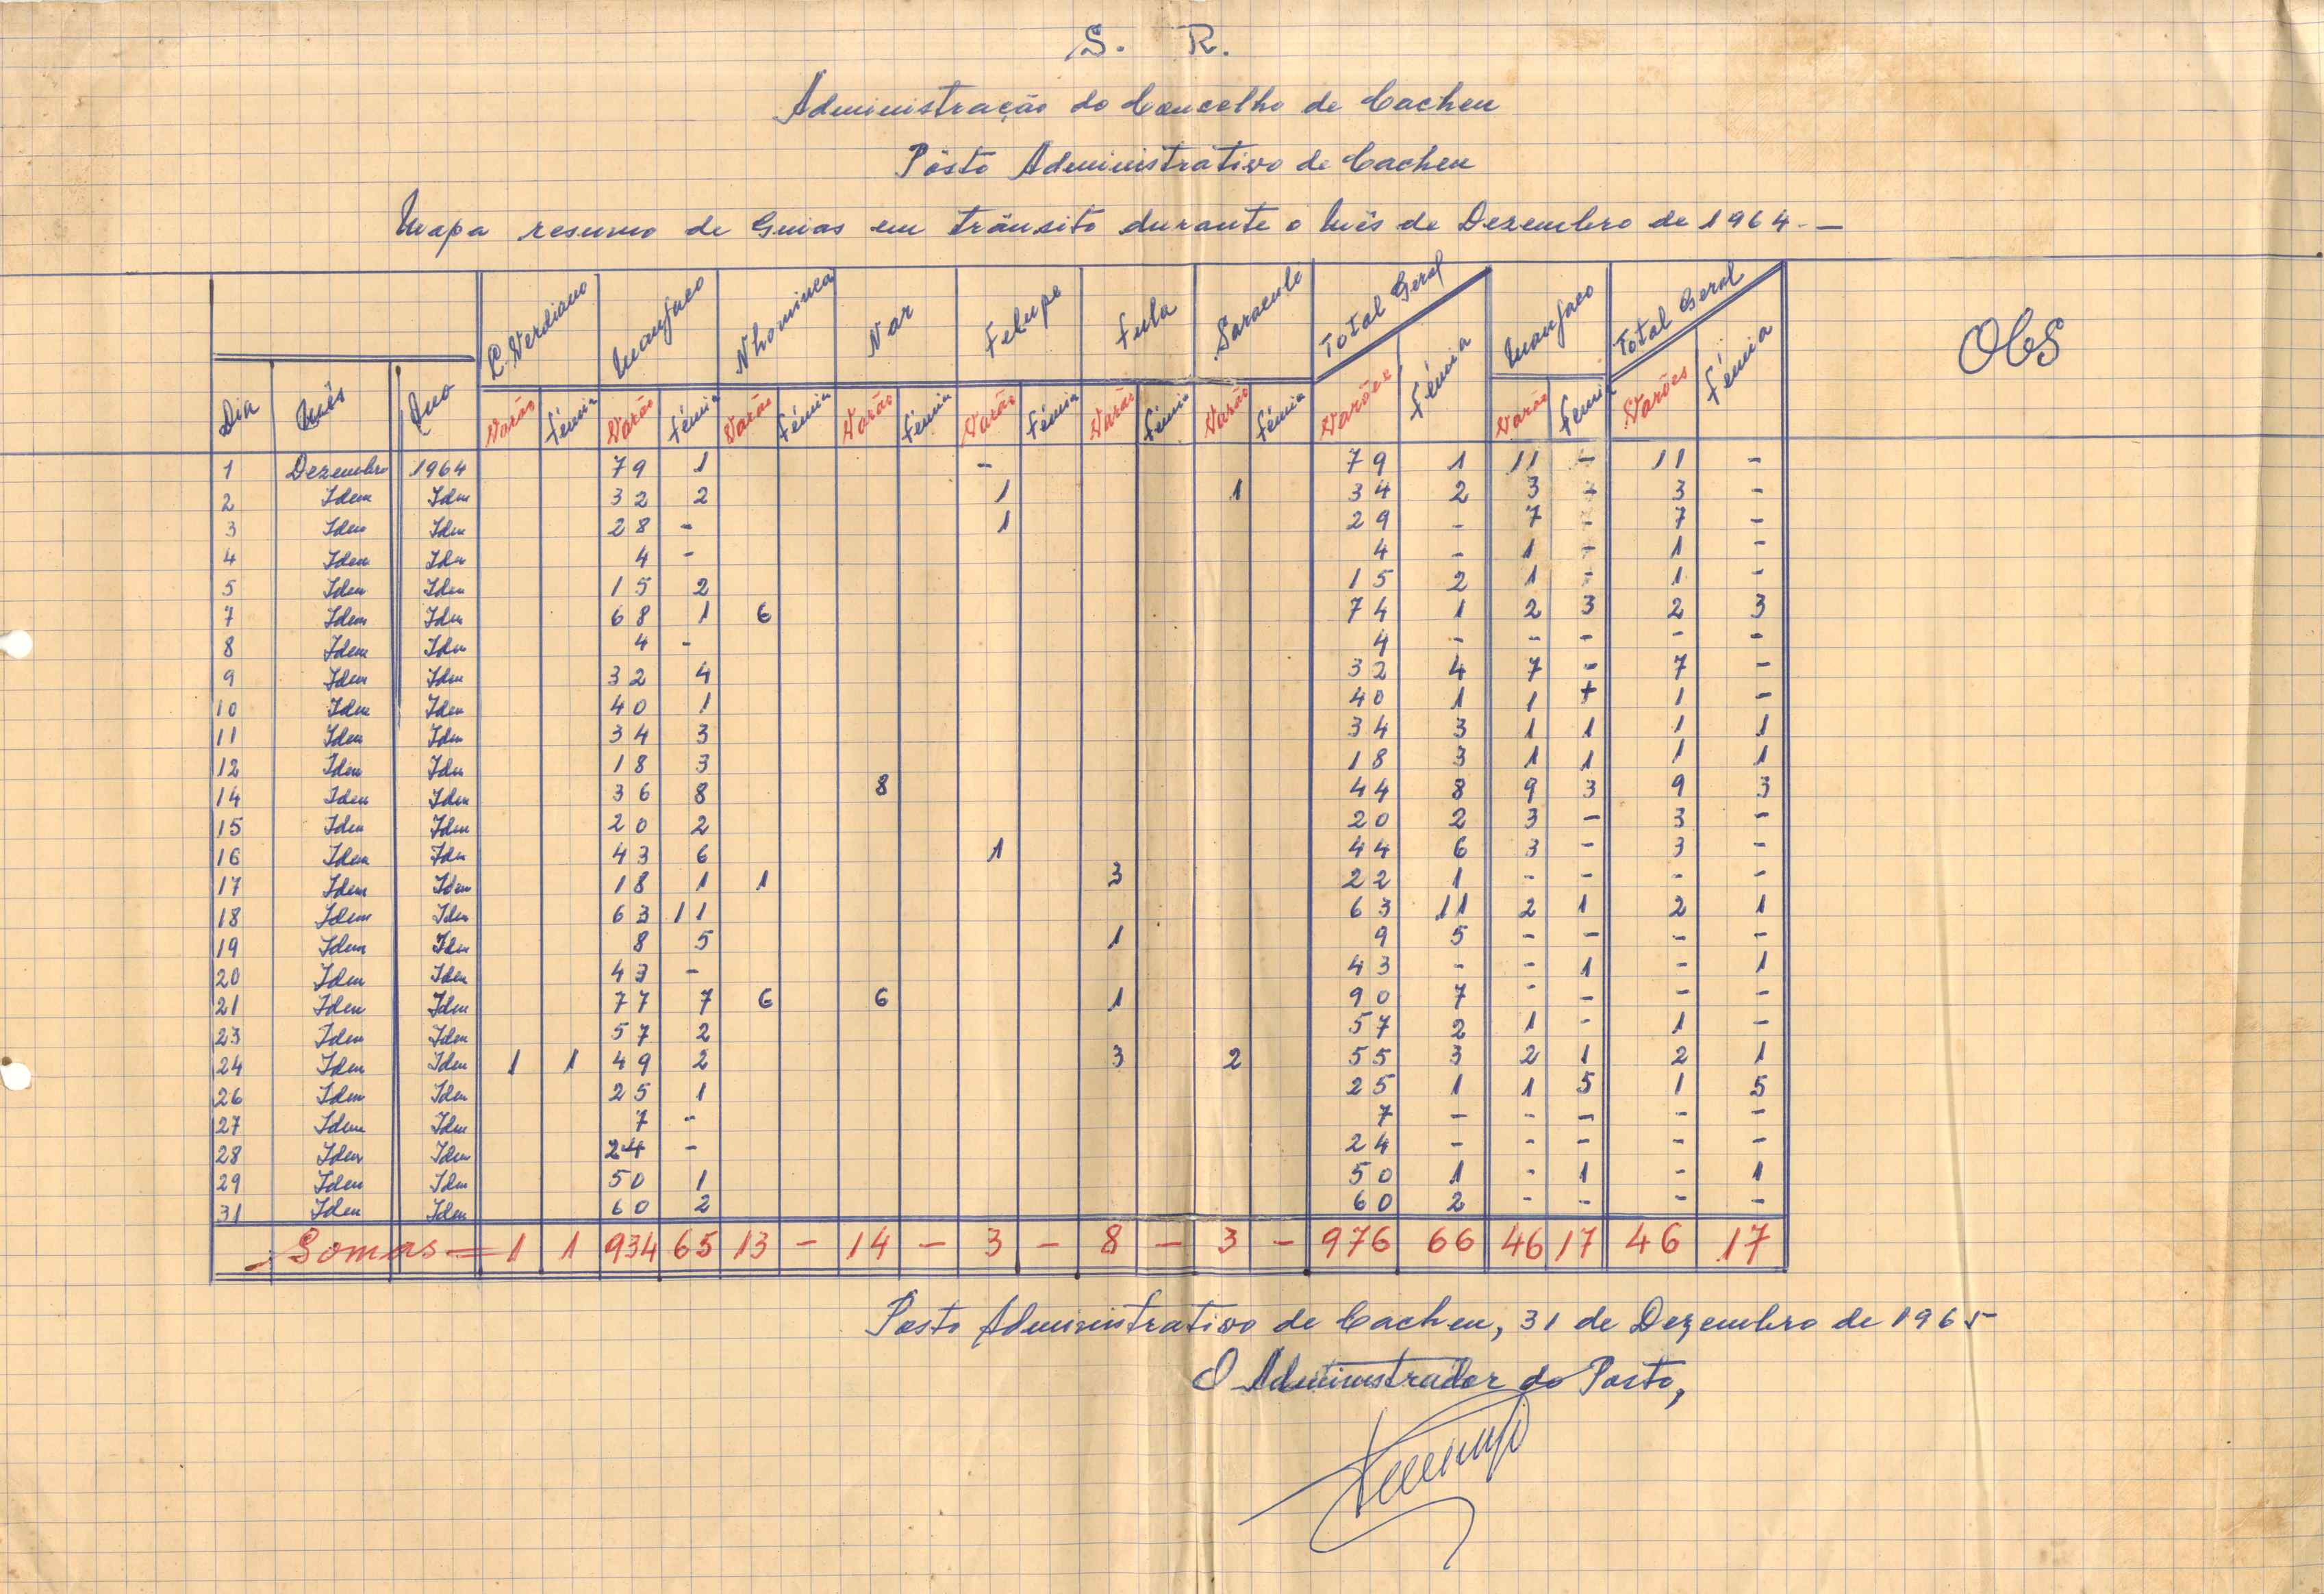 S. R.
Administração do Concelho de Cacheu
Pôsto Administrativo de Cacheu
Mapa resumo de Guias em trânsito durante o Mês de Dezembro de 1964.—
C. Verdiano Manjaco Nhominca Nar Felupe Fula Saracule Total Geral Manjaco Total Geral Obs
Dia Mês Ano Varão Fémia Varão Fémia Varão Fémia Varão Fémia Varão Fémia Varão Fémia Varão Fémia Varões Fémia Varão Femia Varões Fémia
1 Dezembro 1964 79 1 - 79 1 11 - 11 -
2 Idem Idem 32 2 1 1 34 2 3 - 3 -
3 Idem Idem 28 - 1 29 - 7 - 7 -
4 Idem Idem 4 - 4 - 1 - 1 -
5 Idem Idem 15 2 15 2 1 - 1 -
7 Idem Idem 68 1 6 74 1 2 3 2 3
8 Idem Idem 4 - 4 - - - - -
9 Idem Idem 32 4 32 4 7 - 7 -
10 Idem Idem 40 1 40 1 1 + 1 -
11 Idem Idem 34 3 34 3 1 1 1 1
12 Idem Idem 18 3 18 3 1 1 1 1
14 Idem Idem 36 8 8 44 8 9 3 9 3
15 Idem Idem 20 2 20 2 3 - 3 -
16 Idem Idem 43 6 1 44 6 3 - 3 -
17 Idem Idem 18 1 1 3 22 1 - - - -
18 Idem Idem 63 11 63 11 2 1 2 1
19 Idem Idem 8 5 1 9 5 - - - -
20 Idem Idem 43 - 43 - - 1 - 1
21 Idem Idem 77 7 6 6 1 90 7 - - - -
23 Idem Idem 57 2 57 2 1 - 1 -
24 Idem Idem 1 1 49 2 3 2 55 3 2 1 2 1
26 Idem Idem 25 1 25 1 1 5 1 5
27 Idem Idem 7 - 7 - - - - -
28 Idem Idem 24 - 24 - - - - -
29 Idem Idem 50 1 50 1 - 1 - 1
31 Idem Idem 60 2 60 2 - - - -
- Somas — 1 1 934 65 13 - 14 - 3 - 8 - 3 - 976 66 46 17 46 17
Posto Administrativo de Cacheu, 31 de Dezembro de 1965
O Administrador do Posto,